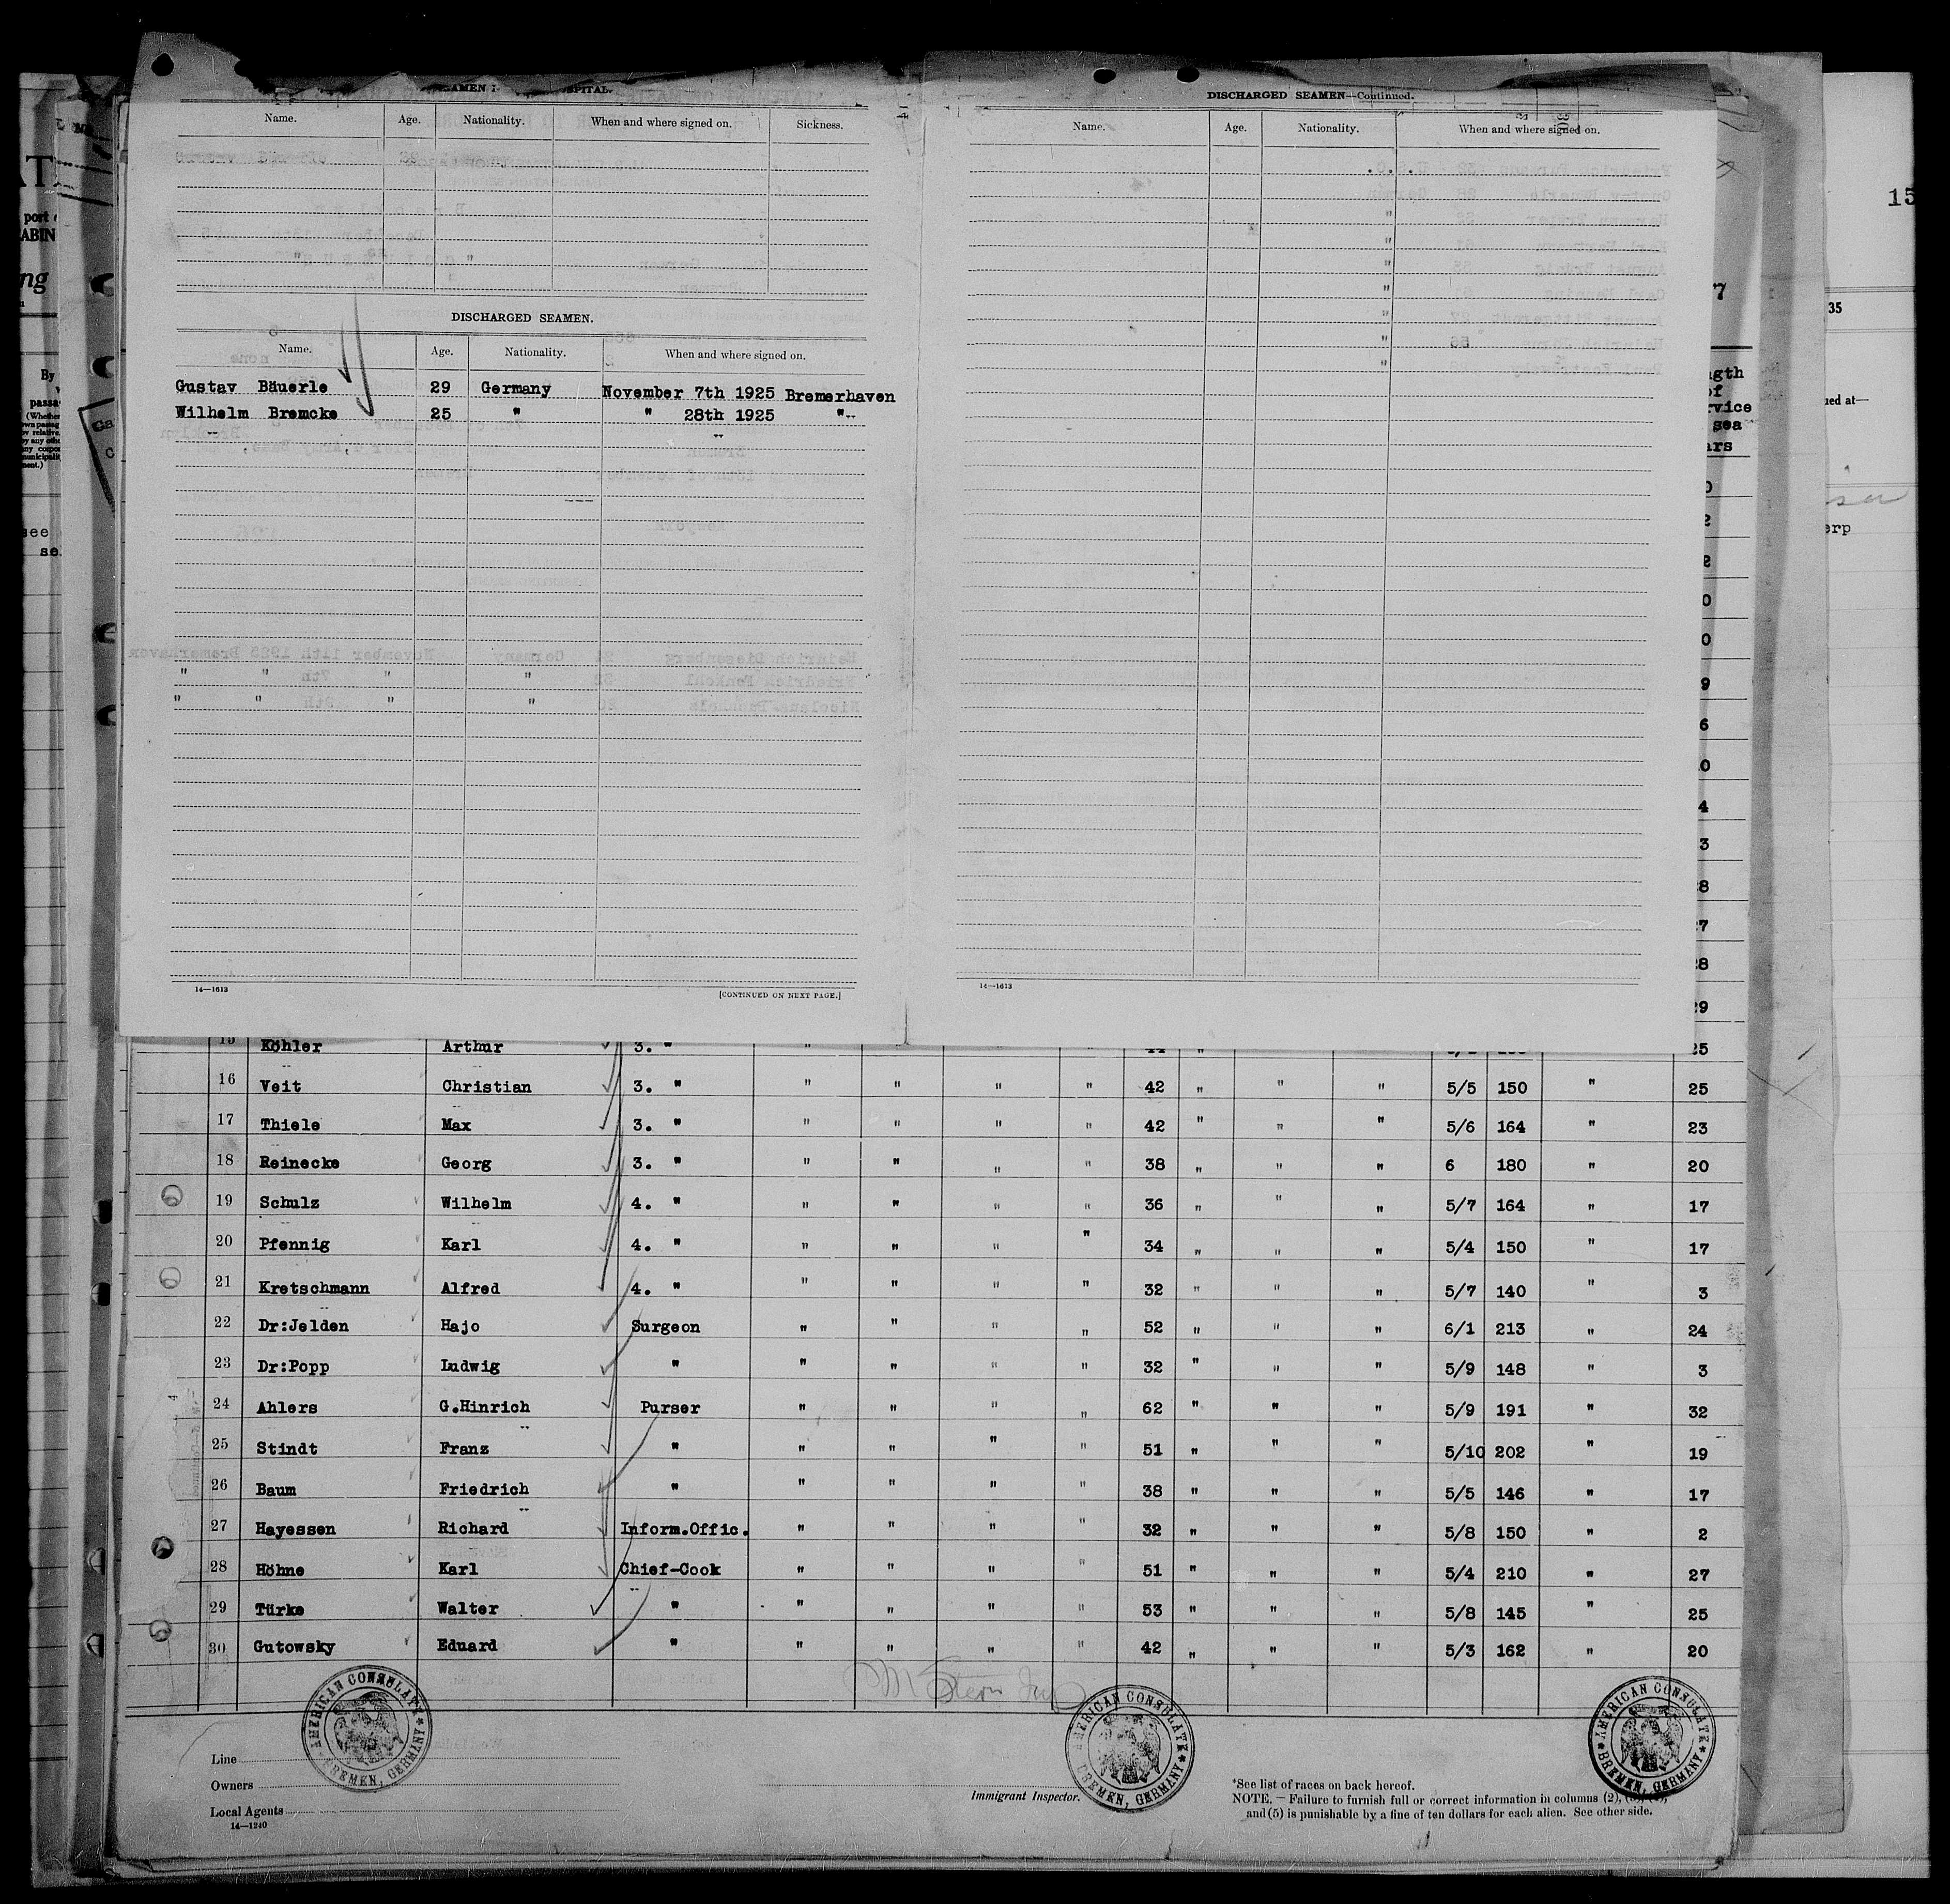 DISCHARGED SEAMEN—Continued.
Name. Age. Nationality. When and where signed on. Sickness.
Name. Age. Nationality. When and where signed on.
DISCHARGED SEAMEN.
Name. Age. Nationality. When and where signed on.
Gustav Bäuerle 29 Germany November 7th 1925 Bremerhaven
Wilhelm Bremcke 25 " " 28th 1925 "
14—1613 [CONTINUED ON NEXT PAGE.]
14—1613
15 Köhler Arthur 3. " 25
16 Veit Christian 3. " " " " " 42 " " " 5/5 150 " 25
17 Thiele Max 3. " " " " " 42 " " " 5/6 164 " 23
18 Reinecke Georg 3. " " " " " 38 " " " 6 180 " 20
19 Schulz Wilhelm 4. " " " " " 36 " " " 5/7 164 " 17
20 Pfennig Karl 4. " " " " " 34 " " " 5/4 150 " 17
21 Kretschmann Alfred 4. " " " " " 32 " " " 5/7 140 " 3
22 Dr:Jelden Hajo Surgeon " " " " 52 " " " 6/1 213 " 24
23 Dr:Popp Ludwig " " " " " 32 " " " 5/9 148 " 3
24 Ahlers G.Hinrich Purser " " " " 62 " " " 5/9 191 " 32
25 Stindt Franz " " " " " 51 " " " 5/10 202 " 19
26 Baum Friedrich " " " " " 38 " " " 5/5 146 " 17
27 Hayessen Richard Inform.Offic. " " " " 32 " " " 5/8 150 " 2
28 Höhne Karl Chief-Cook " " " " 51 " " " 5/4 210 " 27
29 Türke Walter " " " " " 53 " " " 5/8 145 " 25
30 Gutowsky Eduard " " " " " 42 " " " 5/3 162 " 20
AMERICAN CONSULATE BREMEN, GERMANY
AMERICAN CONSULATE BREMEN, GERMANY
AMERICAN CONSULATE BREMEN, GERMANY
Line
Owners
Local Agents
14—1240
Immigrant Inspector.
*See list of races on back hereof.
NOTE. — Failure to furnish full or correct information in columns (2),
and (5) is punishable by a fine of ten dollars for each alien. See other side.